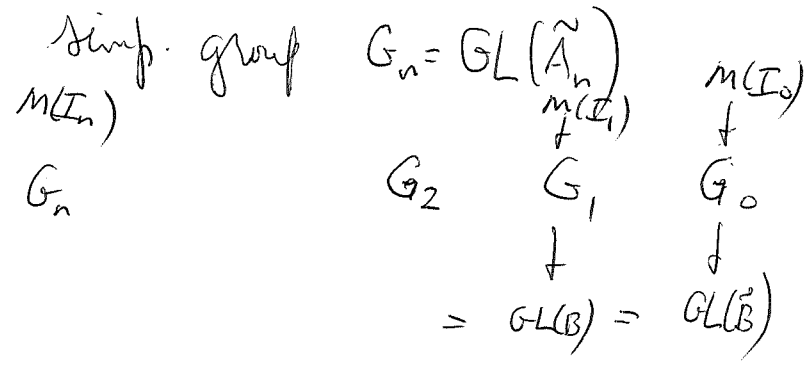 simp. group G_n = GL(Ã_n)
M(I_n) M(I_1) M(I_0)
↓ ↓
G_n G_2 G_1 G_0
↓ ↓
= GL(B) = GL(B̃)